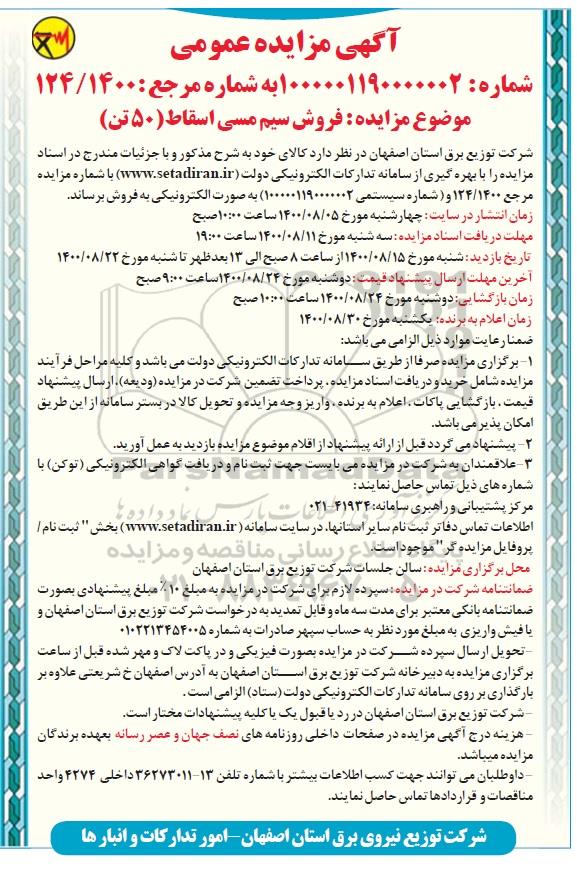 آگهی مزایده عمومی
شماره : ۱۰۰۰۰۰۱۱۹۰۰۰۰۰۰۲ به شماره مرجع : ۱۲۴/۱۴۰۰
موضوع مزایده : فروش سیم مسی اسقاط (۵۰ تن)
شرکت توزیع برق استان اصفهان در نظر دارد کالای خود به شرح مذکور و با جزئیات مندرج در اسناد
مزایده را با بهره گیری از سامانه تدارکات الکترونیکی دولت (www.setadiran.ir) با شماره مزایده
مرجع ۱۲۴/۱۴۰۰ و ( شماره سیستمی ۱۰۰۰۰۰۱۱۹۰۰۰۰۰۰۲) به صورت الکترونیکی به فروش برساند.
زمان انتشار در سایت : چهارشنبه مورخ ۱۴۰۰/۰۸/۰۵ ساعت ۱۰:۰۰ صبح
مهلت دریافت اسناد مزایده : سه شنبه مورخ ۱۴۰۰/۰۸/۱۱ ساعت ۱۹:۰۰
تاریخ بازدید : شنبه مورخ ۱۴۰۰/۰۸/۱۵ از ساعت ۸ صبح الی ۱۳ بعدظهر تا شنبه مورخ ۱۴۰۰/۰۸/۲۲
آخرین مهلت ارسال پیشنهاد قیمت : دوشنبه مورخ ۱۴۰۰/۰۸/۲۴ ساعت ۹:۰۰ صبح
زمان بازگشایی: دوشنبه مورخ ۱۴۰۰/۰۸/۲۴ ساعت ۱۰:۰۰ صبح
زمان اعلام به برنده : یکشنبه مورخ ۱۴۰۰/۰۸/۳۰
ضمنا رعایت موارد ذیل الزامی می باشد:
۱- برگزاری مزایده صرفا از طریق ســـامانه تدارکات الکترونیکی دولت می باشد و کلیه مراحل فرآیند
مزایده شامل خرید و دریافت اسناد مزایده ، پرداخت تضمین شرکت در مزایده (ودیعه)، ارسال پیشنهاد
قیمت ، بازگشایی پاکات ، اعلام به برنده ، واریز وجه مزایده و تحویل کالا در بستر سامانه از این طریق
امکان پذیر می باشد.
۲- پیشنهاد می گردد قبل از ارائه پیشنهاد از اقلام موضوع مزایده بازدید به عمل آورید.
۳- علاقمندان به شرکت در مزایده می بایست جهت ثبت نام و دریافت گواهی الکترونیکی (توکن) با
شماره های ذیل تماس حاصل نمایند:
مرکز پشتیبانی و راهبری سامانه: ۴۱۹۳۴-۰۲۱
اطلاعات تماس دفاتر ثبت نام سایر استانها، در سایت سامانه (www.setadiran.ir) بخش " ثبت نام /
پروفایل مزایده گر " موجود است.
محل برگزاری مزایده : سالن جلسات شرکت توزیع برق استان اصفهان
ضمانتنامه شرکت در مزایده : سپرده لازم برای شرکت در مزایده به مبلغ ۱۰٪ مبلغ پیشنهادی بصورت
ضمانتنامه بانکی معتبر برای مدت سه ماه و قابل تمدید به درخواست شرکت توزیع برق استان اصفهان و
یا فیش واریزی به مبلغ مورد نظر به حساب سپهر صادرات به شماره ۰۱۰۲۲۱۳۴۵۴۰۰۵
- تحویل ارسال سپرده شـــرکت در مزایده بصورت فیزیکی و در پاکت لاک و مهر شده قبل از ساعت
برگزاری مزایده به دبیرخانه شرکت توزیع برق اســـتان اصفهان به آدرس اصفهان خ شریعتی علاوه بر
بارگذاری بر روی سامانه تدارکات الکترونیکی دولت (ستاد) الزامی است .
- شرکت توزیع برق استان اصفهان در رد یا قبول یک یا کلیه پیشنهادات مختار است.
- هزینه درج آگهی مزایده در صفحات داخلی روزنامه های نصف جهان و عصر رسانه بعهده برندگان
مزایده میباشد.
- داوطلبان می توانند جهت کسب اطلاعات بیشتر با شماره تلفن ۱۳-۳۶۲۷۳۰۱۱ داخلی ۴۲۷۴ واحد
مناقصات و قراردادها تماس حاصل نمایند.
شرکت توزیع نیروی برق استان اصفهان-امور تدارکات و انبار ها